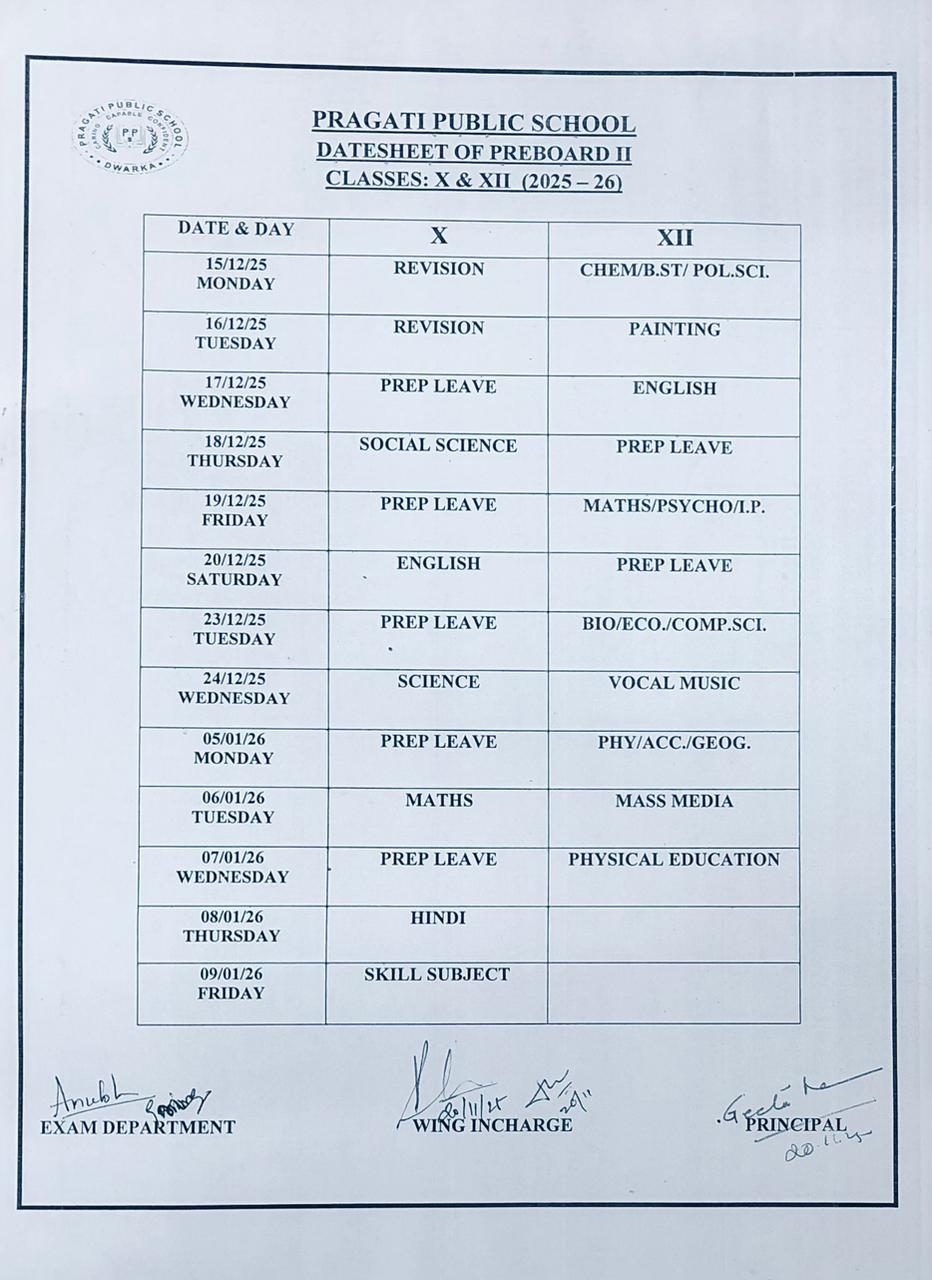 PRAGATI PUBLIC SCHOOL
CARING CAPABLE CONFIDENT
P P
DWARKA
PRAGATI PUBLIC SCHOOL
DATESHEET OF PREBOARD II
CLASSES: X & XII (2025 – 26)
DATE & DAY X XII
15/12/25 REVISION CHEM/B.ST/ POL.SCI.
MONDAY
16/12/25 REVISION PAINTING
TUESDAY
17/12/25 PREP LEAVE ENGLISH
WEDNESDAY
18/12/25 SOCIAL SCIENCE PREP LEAVE
THURSDAY
19/12/25 PREP LEAVE MATHS/PSYCHO/I.P.
FRIDAY
20/12/25 ENGLISH PREP LEAVE
SATURDAY
23/12/25 PREP LEAVE BIO/ECO./COMP.SCI.
TUESDAY
24/12/25 SCIENCE VOCAL MUSIC
WEDNESDAY
05/01/26 PREP LEAVE PHY/ACC./GEOG.
MONDAY
06/01/26 MATHS MASS MEDIA
TUESDAY
07/01/26 PREP LEAVE PHYSICAL EDUCATION
WEDNESDAY
08/01/26 HINDI
THURSDAY
09/01/26 SKILL SUBJECT
FRIDAY
20/11/25 20/11
EXAM DEPARTMENT WING INCHARGE PRINCIPAL
20.11.25